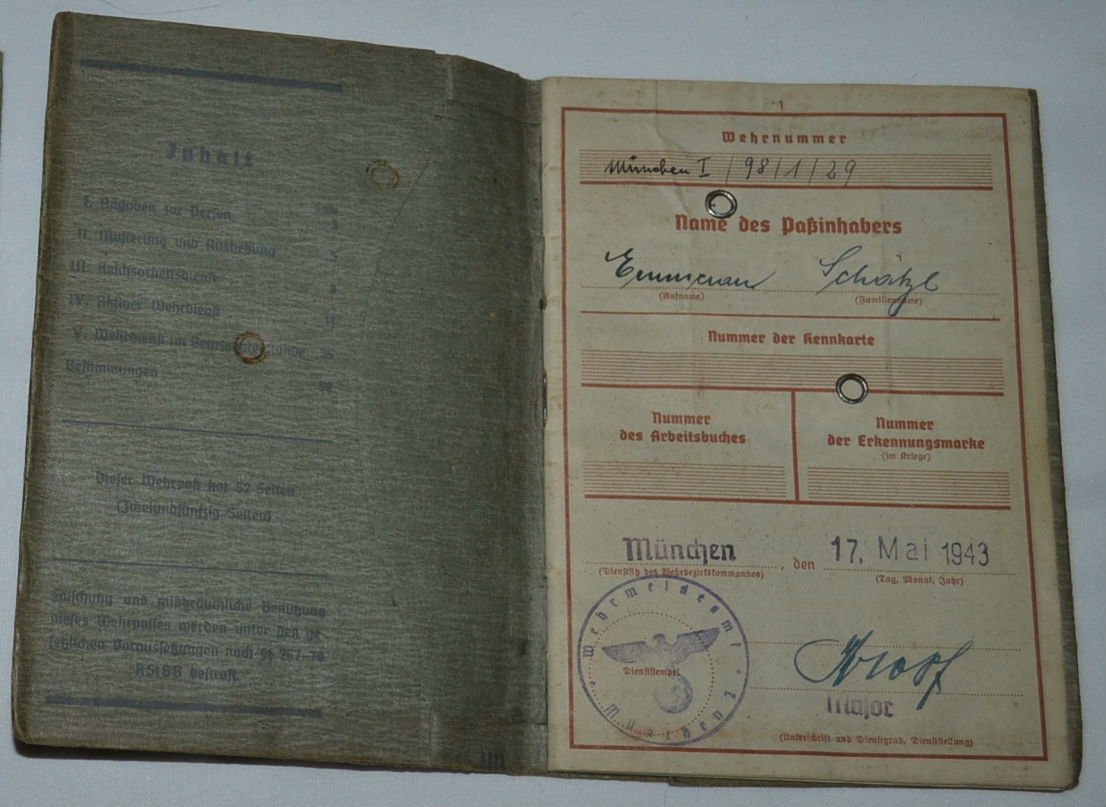 Inhalt
Seite
I. Angaben zur Person 1
II. Musterung und Aushebung 5
III. Reichsarbeitsdienst 8
IV. Aktiver Wehrdienst 11
V. Wehrdienst im Beurlaubtenstande 36
Bestimmungen
Dieser Wehrpaß hat 52 Seiten
(Zweiundfünfzig Seiten)
Fälschung und mißbräuchliche Benutzung
dieses Wehrpasses werden unter den ge-
setzlichen Voraussetzungen nach §§ 267
RStGB bestraft.
1
Wehrnummer
München I / 98 / 1 / 29
Name des Paßinhabers
Emmeram Schätzl
(Rufname) (Familienname)
Nummer der Kennkarte
Nummer
des Arbeitsbuches
Nummer
der Erkennungsmarke
(im Kriege)
München, den 17. Mai 1943
(Dienstsitz des Wehrbezirkskommandos) (Tag, Monat, Jahr)
Wehrmeldeamt
Dienststempel
München 1
Major
(Unterschrift und Dienstgrad, Dienststellung)